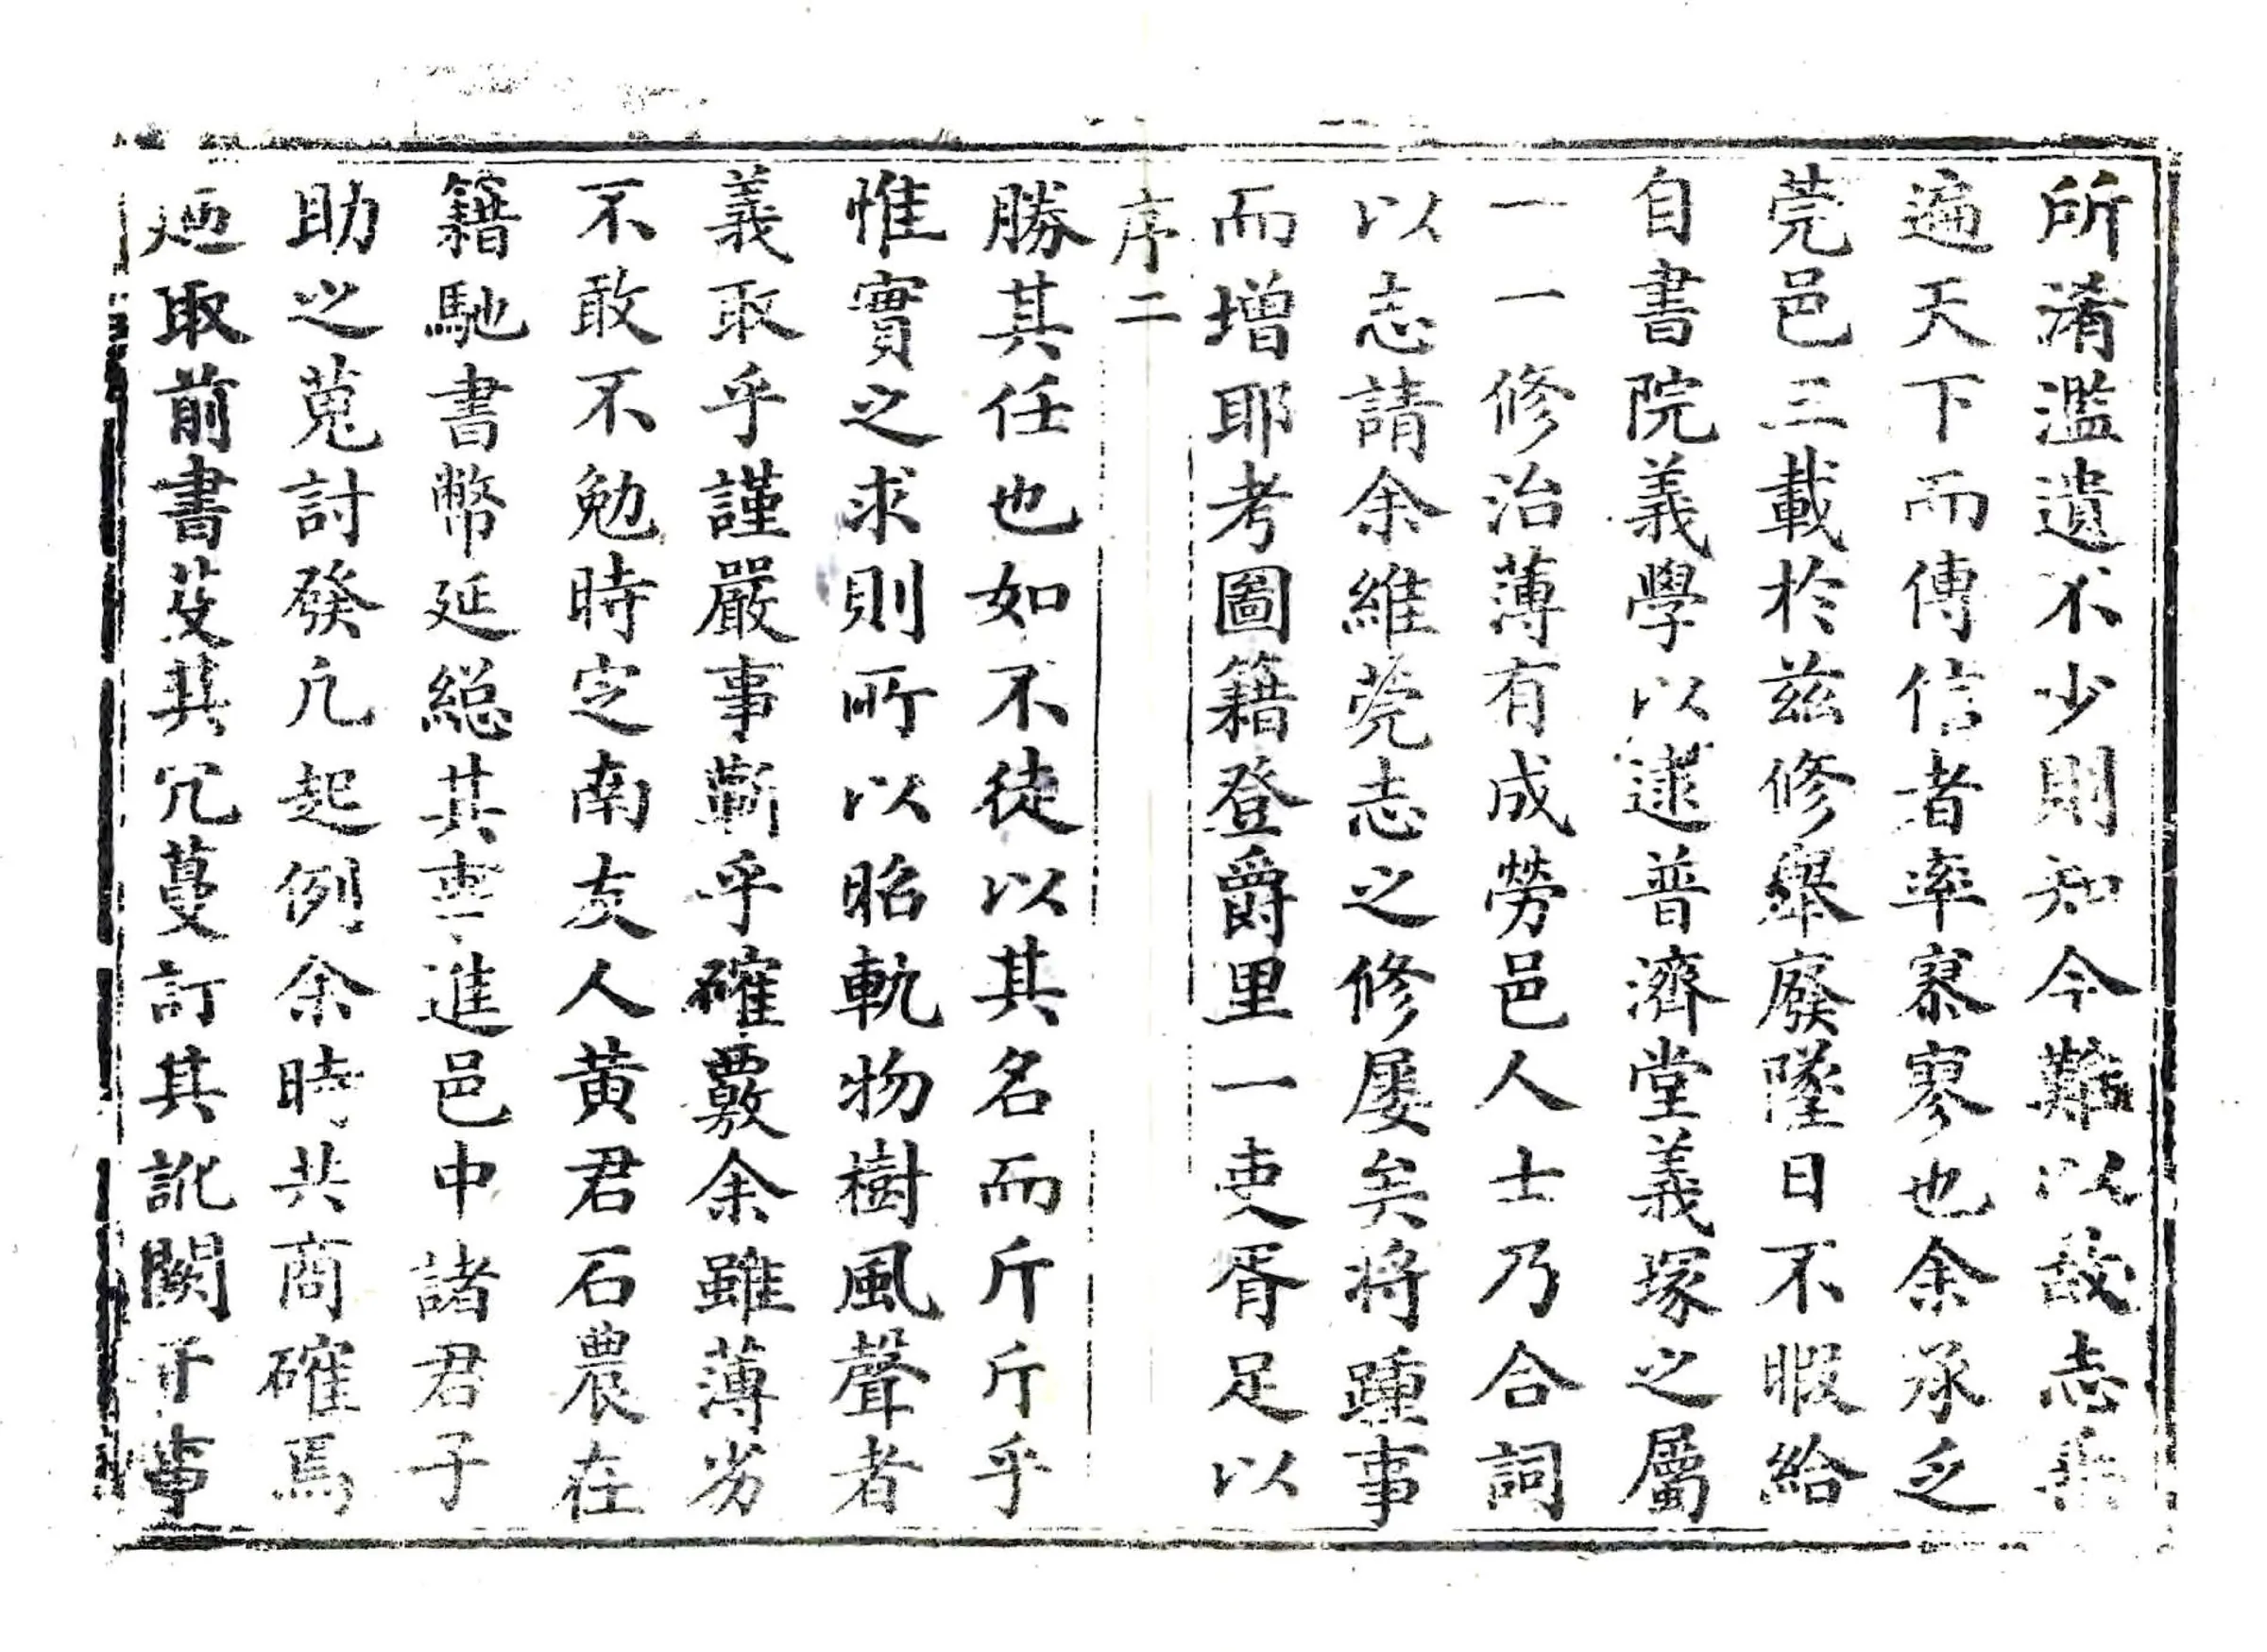 所淆濫遺不少則知今難以故志乘
遍天下而傳信者率寡寥也余承乏
莞邑三載於兹修舉廢墜日不暇給
自書院義學以逮普濟堂義塚之屬
一一修治薄有成勞邑人士乃合詞
以志請余維莞志之修屡矣将踵事
而增耶考圖籍登爵里一吏胥足以
序二
勝其任也如不徒以其名而斤斤乎
惟實之求則所以昭軌物樹風聲者
義取乎謹嚴事蘄乎確覈余雖薄劣
不敢不勉時定南友人黄君石農在
籍馳書幣延總其事進邑中諸君子
助之蒐討發凡起例余時共商確焉
廼取前書芟其冗蔓訂其訛闕于事